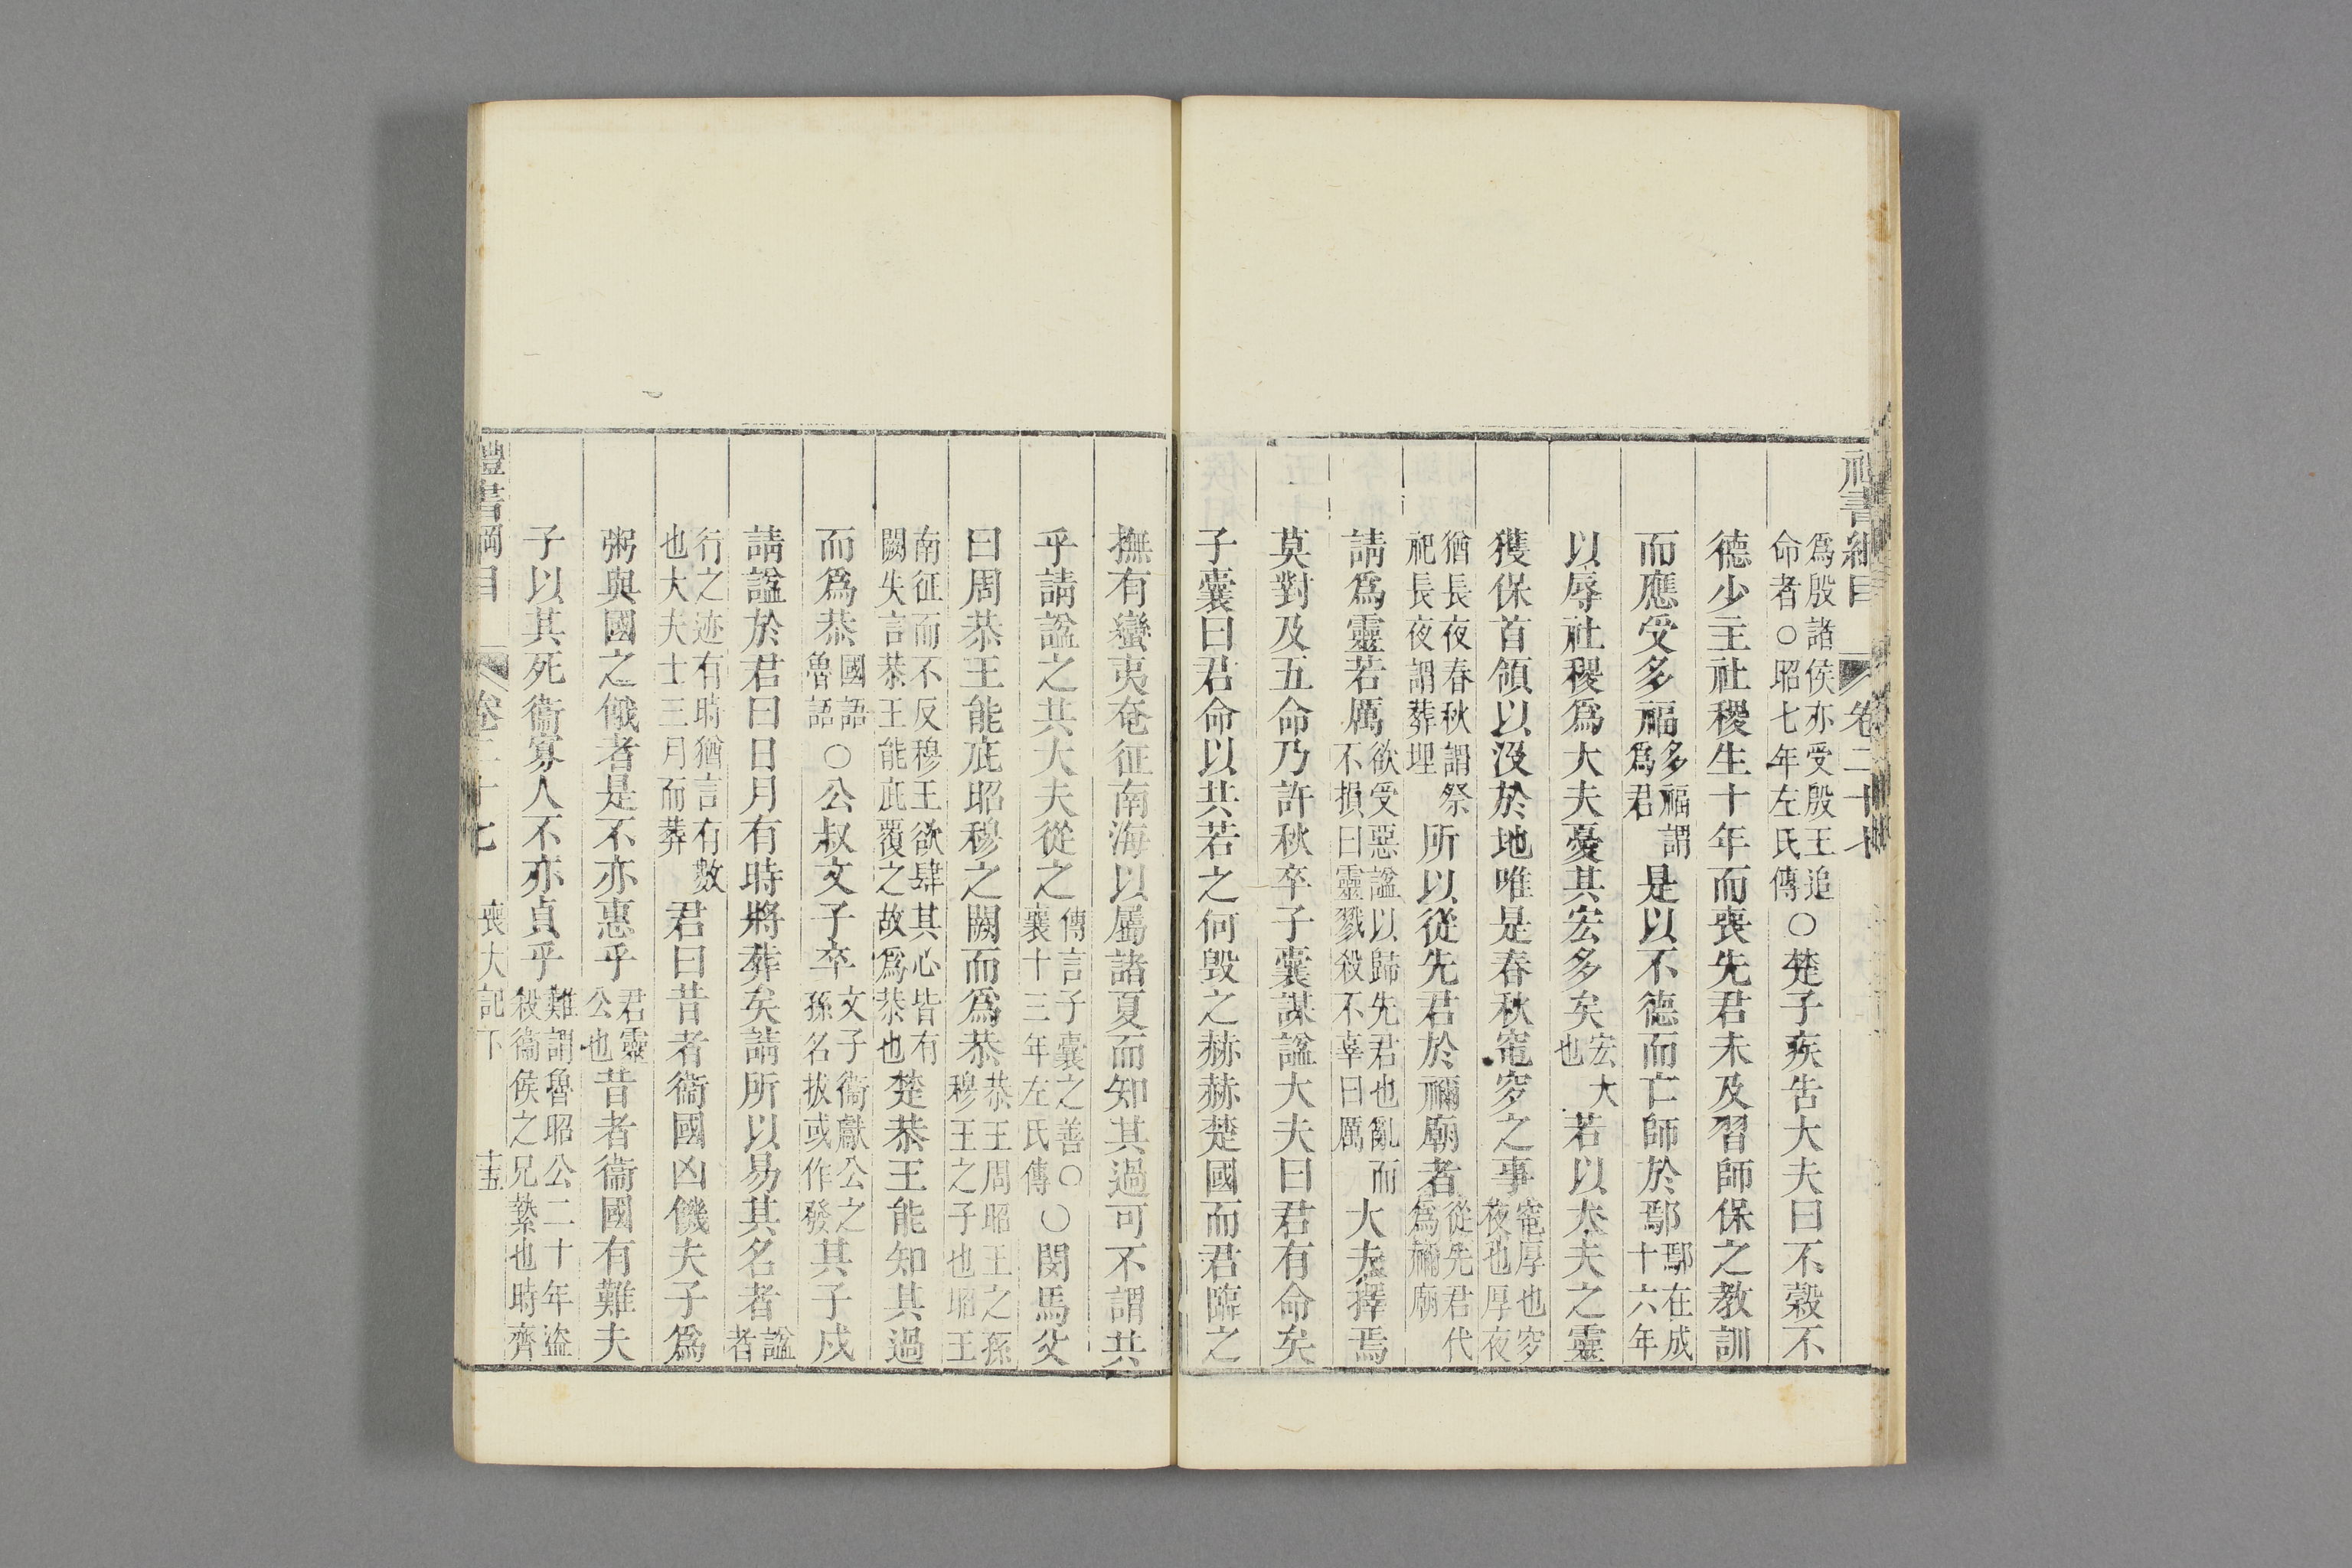 禮書綱目 卷二十七
爲殷諸侯亦受殷王追命者○昭七年左氏傳○楚子疾告大夫曰不穀不
德少主社稷生十年而喪先君未及習師保之教訓
而應受多福多福謂爲君是以不德而亡師於鄢鄢在成十六年
以辱社稷爲大夫憂其宏多矣宏大也若以大夫之靈
獲保首領以沒於地唯是春秋窀穸之事窀厚也穸夜也厚夜
猶長夜春秋謂祭祀長夜謂葬埋所以從先君於禰廟者從先君代爲禰廟
請爲靈若厲欲受惡諡以歸先君也亂而不損曰靈戮殺不辜曰厲大夫擇焉
莫對及五命乃許秋卒子囊謀諡大夫曰君有命矣
子囊曰君命以共若之何毀之赫赫楚國而君臨之
撫有蠻夷奄征南海以屬諸夏而知其過可不謂共
乎請諡之共大夫從之傳言子囊之善○襄十三年左氏傳○閔馬父
曰周恭王能庇昭穆之闕而爲恭恭王周昭王之孫穆王之子也昭王
南征而不反穆王欲肆其心皆有闕失言恭王能庇覆之故爲恭也楚恭王能知其過
而爲恭國語魯語○公叔文子卒文子衞獻公之孫名拔或作發其子戍
請諡於君曰日月有時將葬矣請所以易其名者諡者
行之迹有時猶言有數也大夫士三月而葬君曰昔者衞國凶饑夫子爲
粥與國之餓者是不亦惠乎君靈公也昔者衞國有難夫
子以其死衞寡人不亦貞乎難謂魯昭公二十年盜殺衞侯之兄縶也時齊
禮書綱目 卷二十七 喪大記下 十五